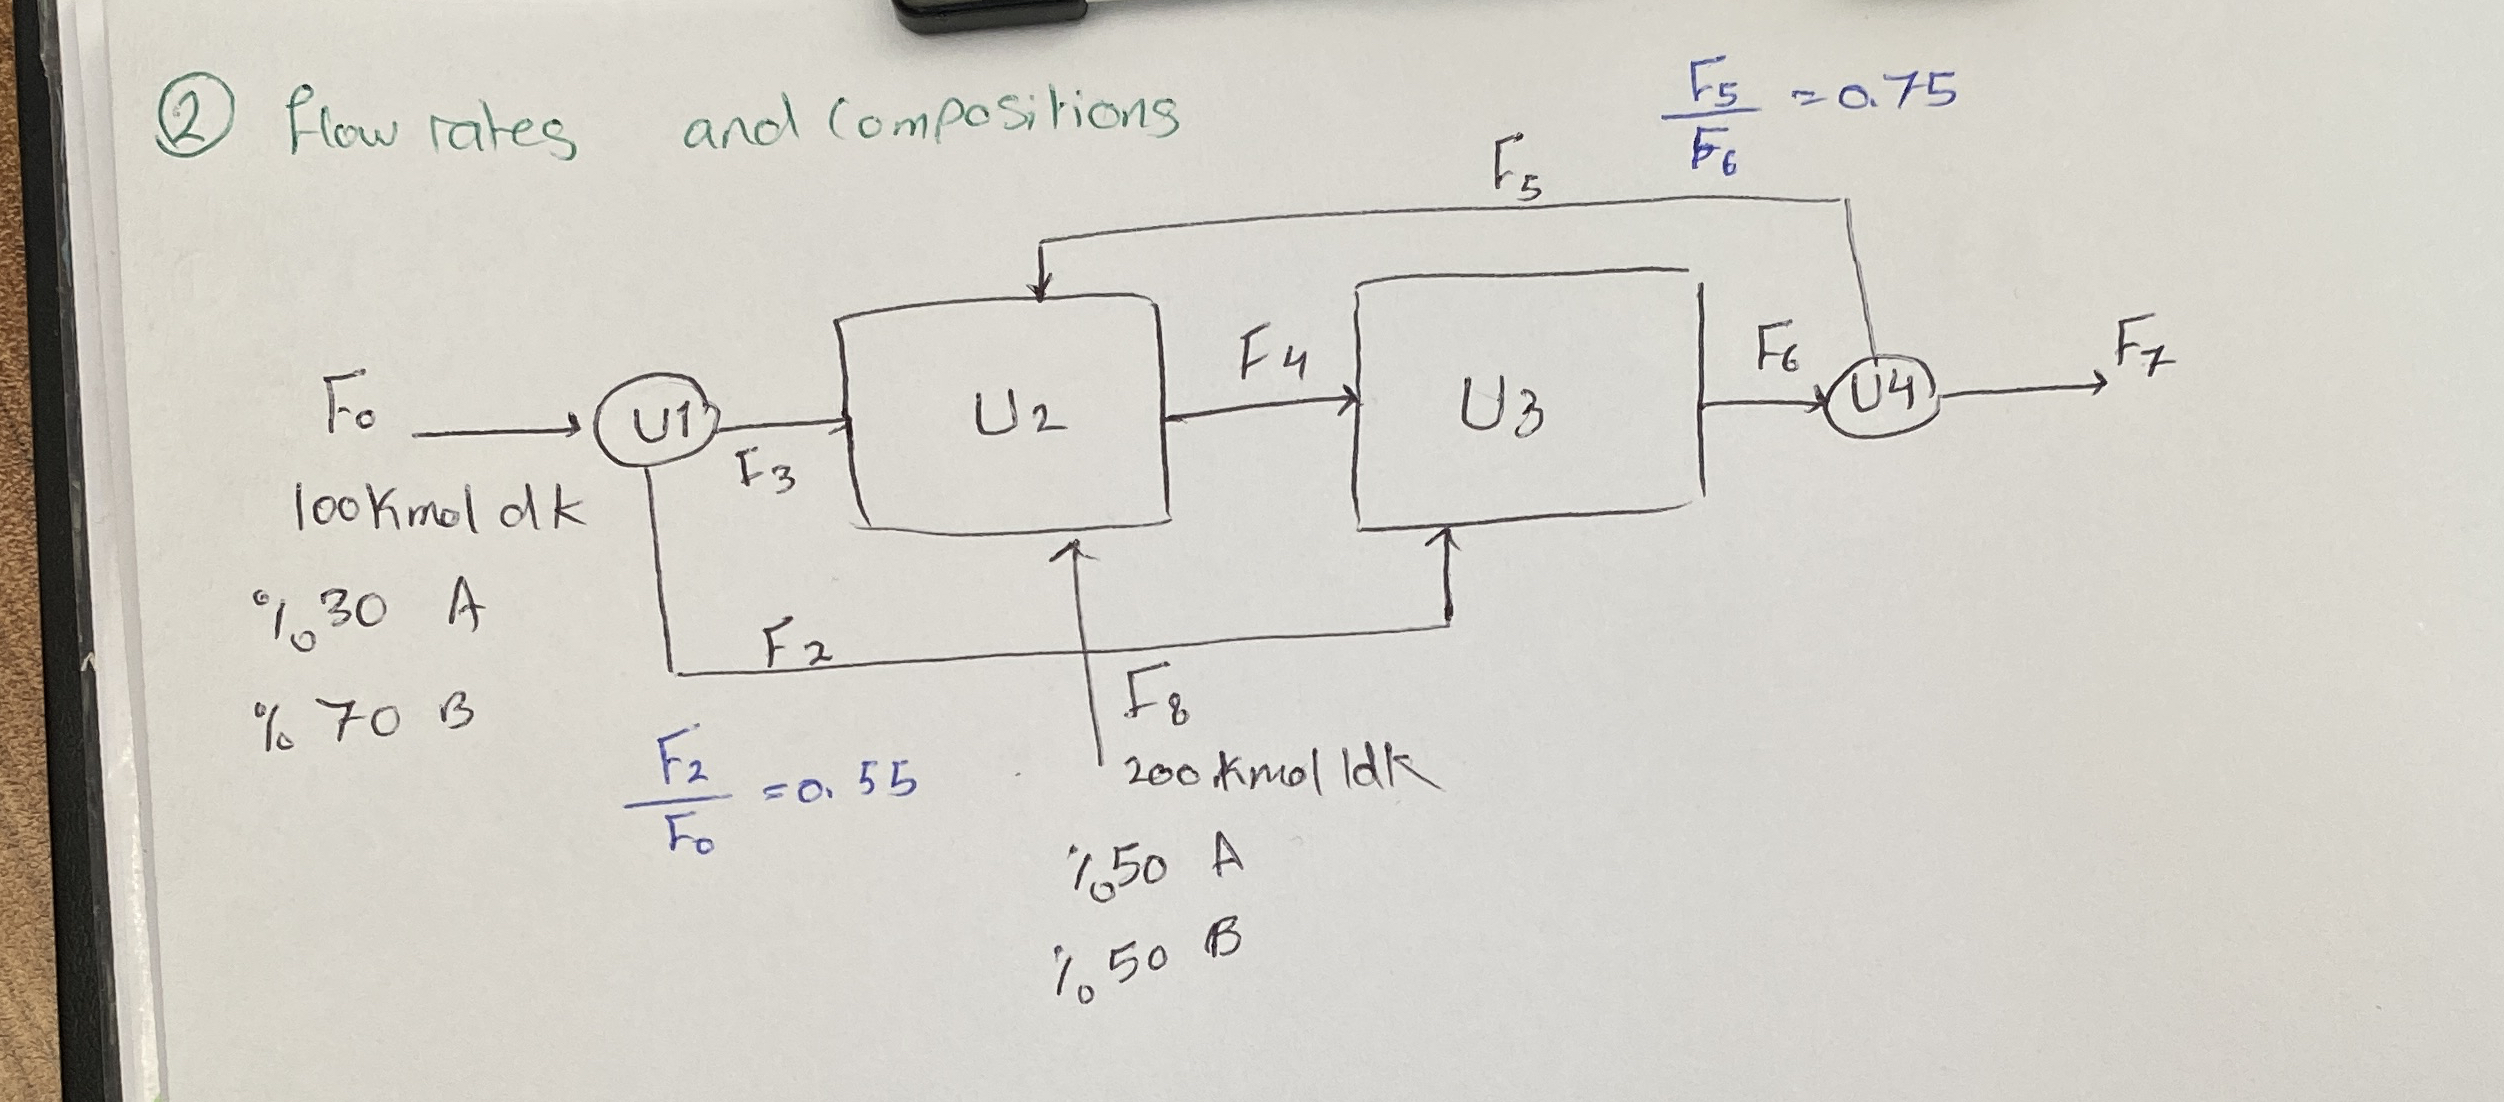 ② flow rates and compositions
F5
/
F6 = 0.75
F5
F0
100 Kmol dk
%30 A
%70 B
U1
F3
U2
F4
U3
F6
U4
F7
F2
F2
/
F0 = 0.55
F8
200 Kmol ldk
%50 A
%50 B